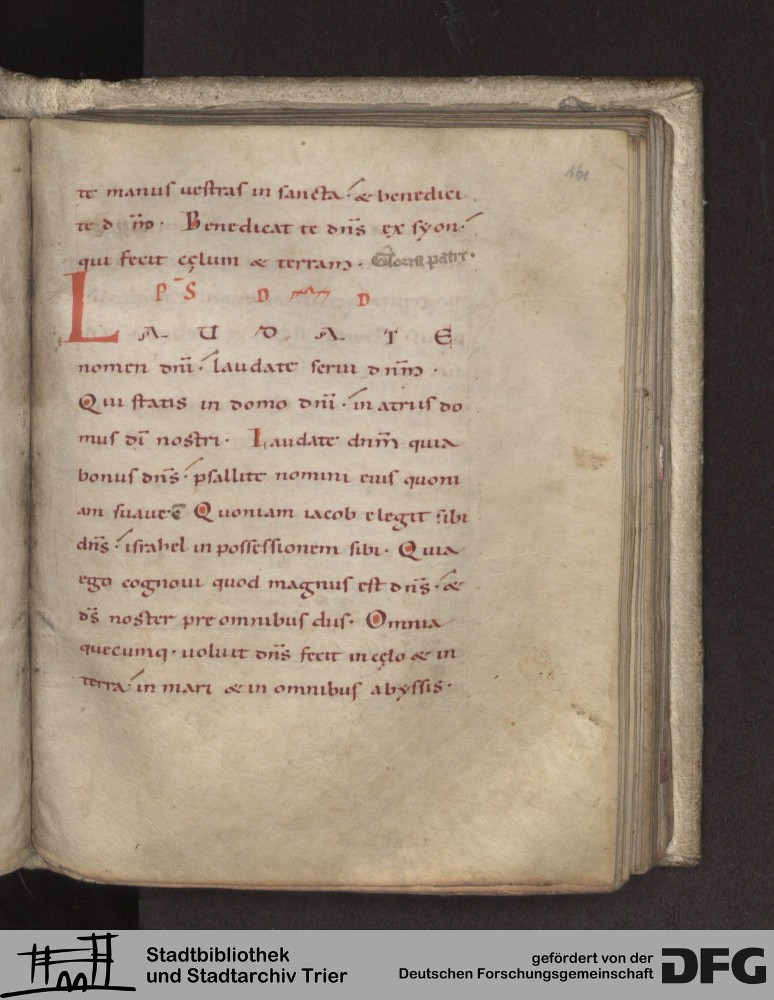 161
te manus uestras in sancta· & benedici
te dnm̄· Benedicat te dn̄s ex syon·
qui fecit cęlum & terram· Gloria patri·
PS D D
L A U D A T E
nomen dn̄i· laudate serui dnm̄·
Qui statis in domo dn̄i· in atriis do
mus dī nostri· Laudate dnm̄ quia
bonus dn̄s· psallite nomini eius quoni
am suaue ē Quoniam iacob elegit sibi
dn̄s· israhel in possessionem sibi· Quia
ego cognoui quod magnus est dn̄s· &
d̄s noster pre omnibus diis· Omnia
quecumq· uoluit dn̄s fecit in cęlo & in
terra· in mari & in omnibus abyssis·
Stadtbibliothek
und Stadtarchiv Trier
gefördert von der
Deutschen Forschungsgemeinschaft
DFG